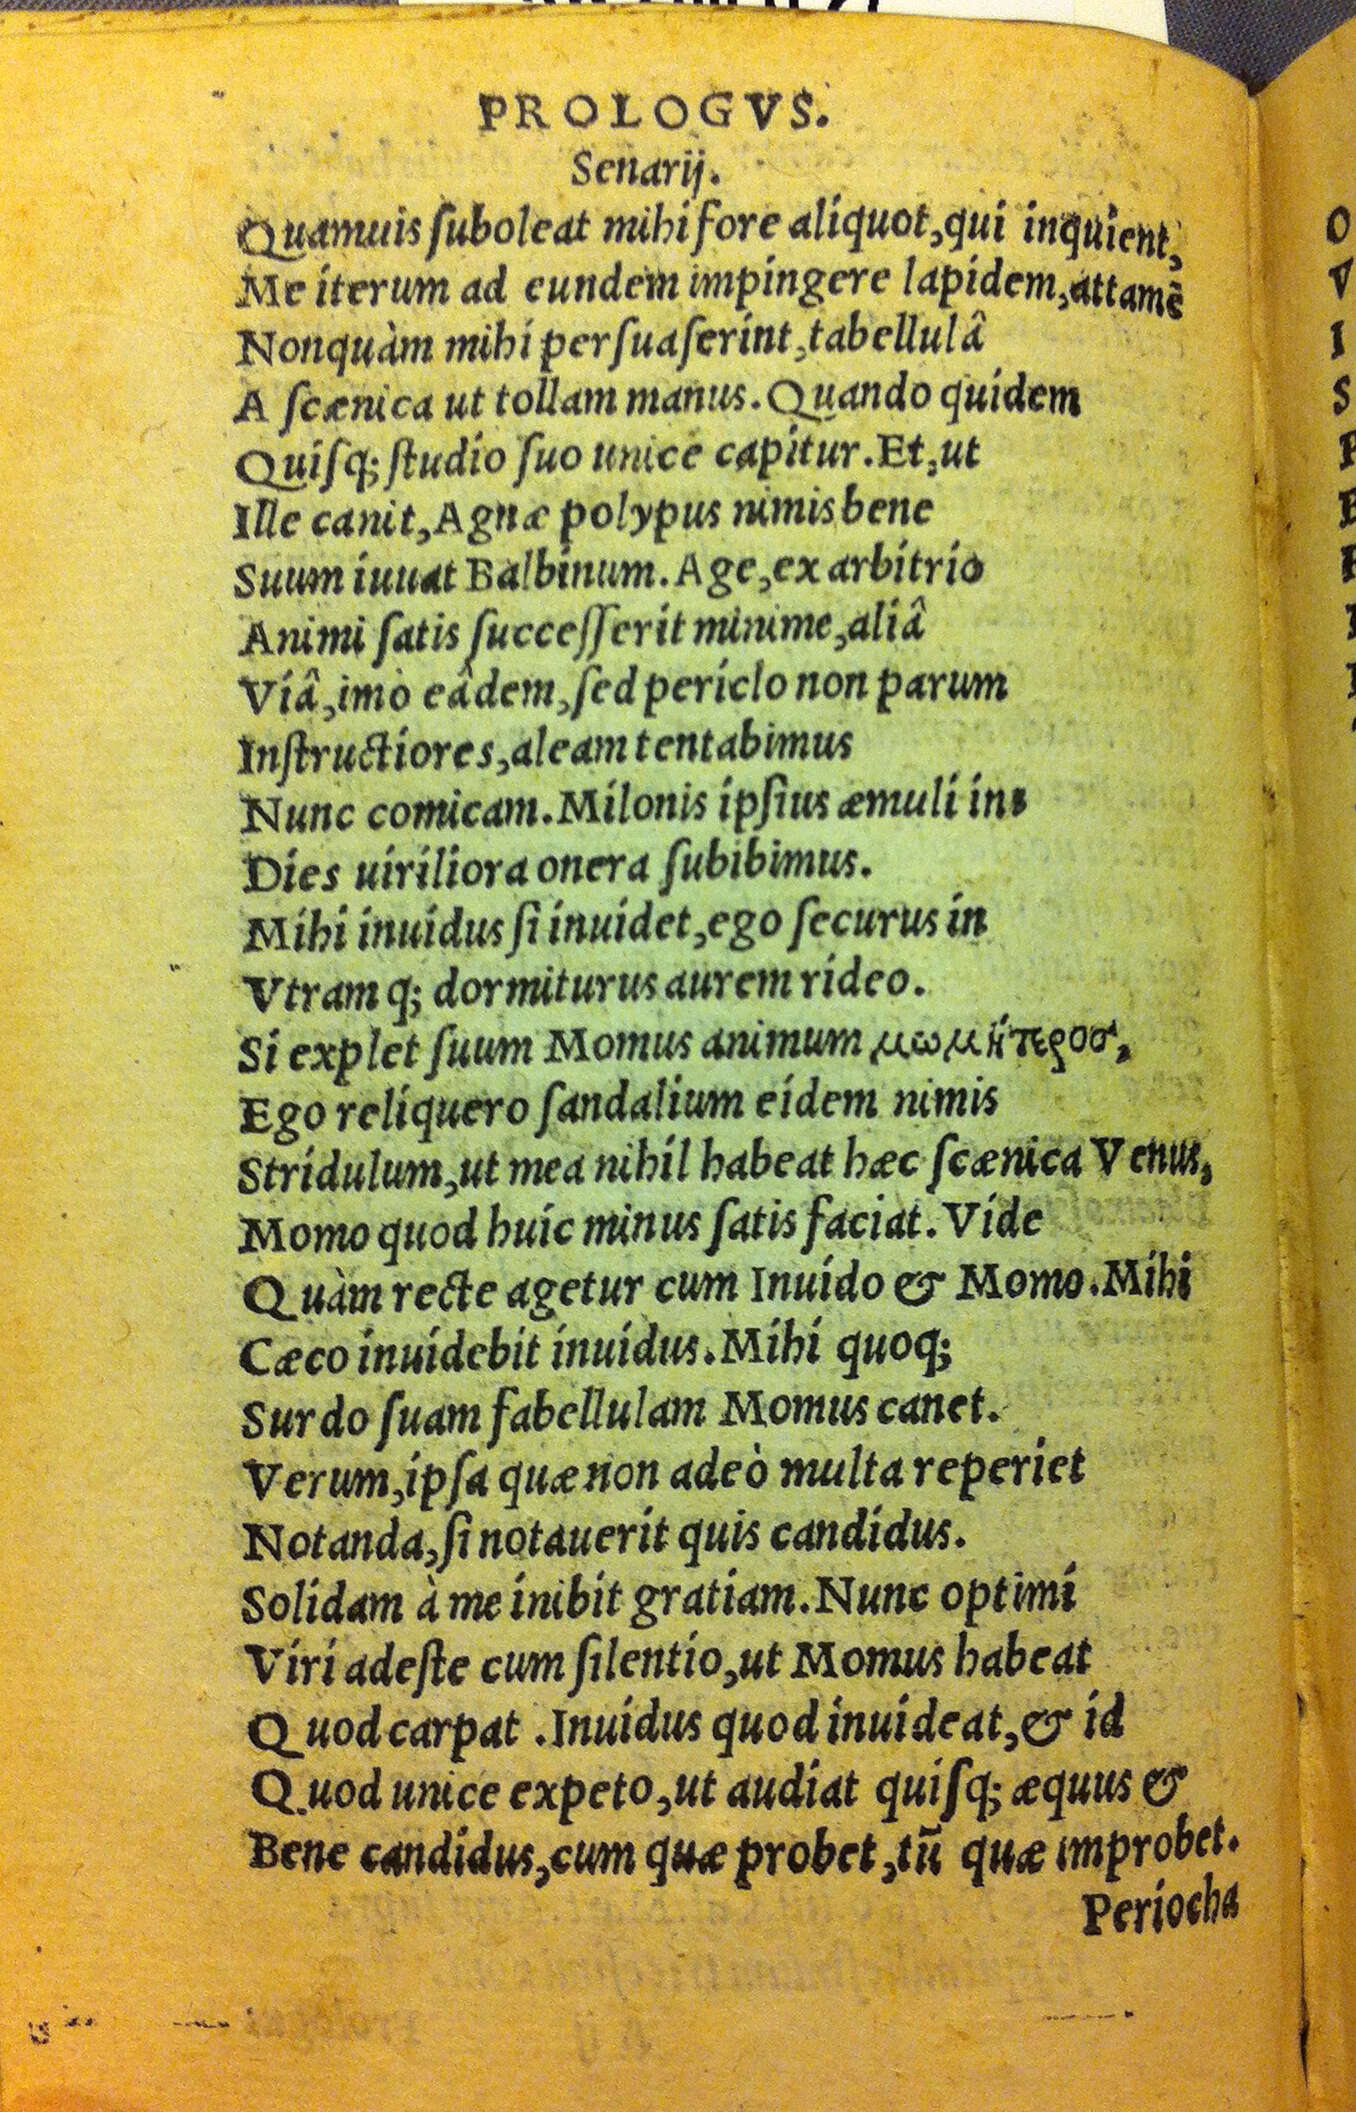 PROLOGVS.
Senarij.
Quamuis ſuboleat mihi fore aliquot, qui inquient,
Me iterum ad eundem impingere lapidem, attamē
Nonquàm mihi perſuaſerint, tabellulâ
A ſcænica ut tollam manus. Quando quidem
Quiſq; ſtudio ſuo unice capitur. Et, ut
Ille canit, Agnæ polypus nimis bene
Suum iuuat Balbinum. Age, ex arbitrio
Animi ſatis ſucceſſerit minime, aliâ
Viâ, imò eâdem, ſed periclo non parum
Inſtructiores, aleam tentabimus
Nunc comicam. Milonis ipſius æmuli in⸗
Dies uiriliora onera ſubibimus.
Mihi inuidus ſi inuidet, ego ſecurus in
Vtramq; dormiturus aurem rideo.
Si explet ſuum Momus animum μωμήτεροσ,
Ego reliquero ſandalium eidem nimis
Stridulum, ut mea nihil habeat hæc ſcænica Venus,
Momo quod huic minus ſatis faciat. Vide
Quàm recte agetur cum Inuido & Momo. Mihi
Cæco inuidebit inuidus. Mihi quoq;
Surdo ſuam fabellulam Momus canet.
Verum, ipſa quæ non adeò multa reperiet
Notanda, ſi notauerit quis candidus.
Solidam à me inibit gratiam. Nunc optimi
Viri adeſte cum ſilentio, ut Momus habeat
Quod carpat. Inuidus quod inuideat, & id
Quod unice expeto, ut audiat quiſq; æquus &
Bene candidus, cum quæ probet, tū quæ improbet.
Periocha
O
V
I
S